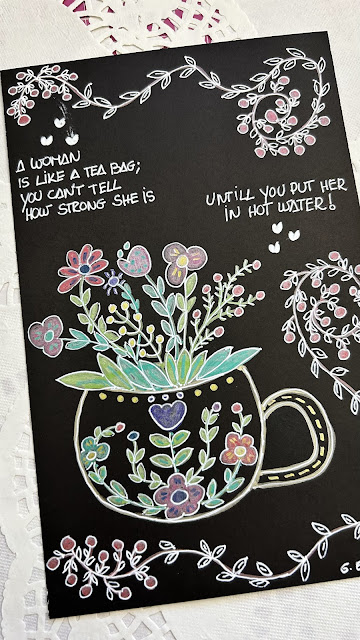 A WOMAN
IS LIKE A TEA BAG;
YOU CAN'T TELL
HOW STRONG SHE IS
UNTILL YOU PUT HER
IN HOT WATER!